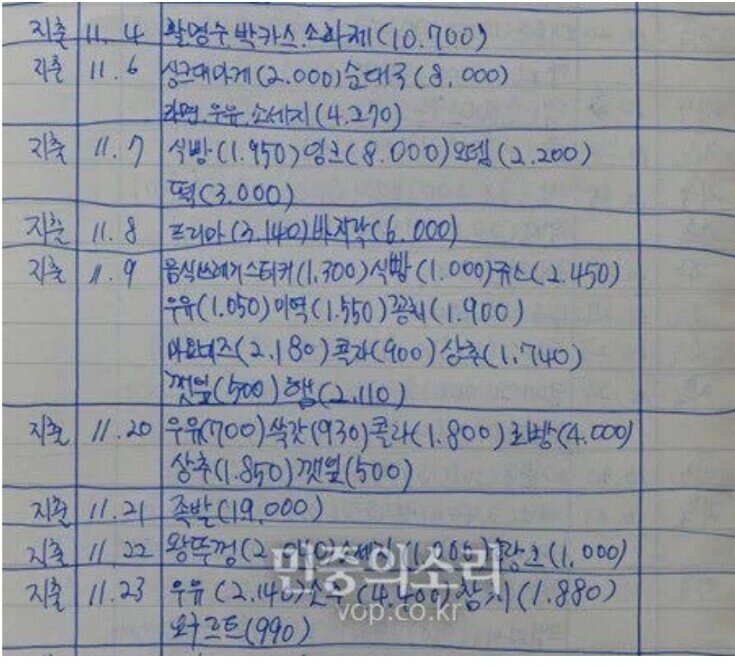 지출 11.4 활명수.박카스.소화제(10.700)
지출 11.6 싱크대마개(2.000)순대국(8.000)
라면.우유.소세지(4.270)
지출 11.7 식빵(1.950)잉크(8.000)오뎅(2.200)
떡(3.000)
지출 11.8 프리마(3.140)바지락(6.000)
지출 11.9 음식쓰레기스티커(1.300)식빵(1.000)쥬스(2.450)
우유(1.050)미역(1.550)꽁치(1.900)
마요네즈(2.180)콜라(900)상추(1.740)
깻잎(500)햄(2.110)
지출 11.20 우유(700)쑥갓(930)콜라(1.800)(4.000)
상추(1.850)깻잎(500)
지출 11.21 족발(19.000)
지출 11.22 왕뚜껑(1.000)(1.000)
지출 11.23 우유(2.140)소주(4.400)참치(1.880)
요구르트(990)
민중의소리
vop.co.kr